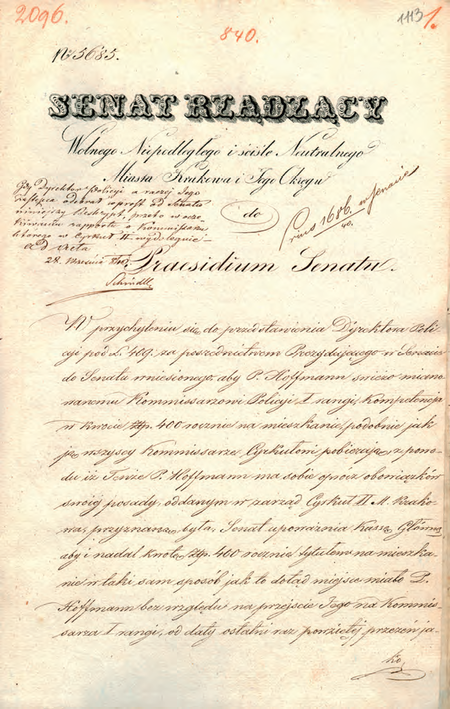 2096.
840.
1113 1.
Nr 5685.
SENAT RZĄDZĄCY
Wolnego Niepodległego i ściśle Neutralnego
Miasta Krakowa i Jego Okręgu
do
Praesidium Senatu.
Gdy Dyrektor Policyi a raczej Jego
Zastępca odebrał wprost od Senatu
niniejszy Reskrypt, przeto w ocze
kiwaniu rapportu o Kommissarzu
w Cyrkule II
ad acta
28. Września
Schindler
1686. w Senacie
40.
W przychyleniu się do przedstawienia Dyrektora Poli
cyi pod L. 409. za pośrednictwem Prezydującego w Senacie
do Senatu wniesionego, aby P. Hoffmann świeżo miano
wanemu Kommissarzowi Policyi I rangi, kompetencja
w kwocie złp. 400 rocznie na mieszkanie, podobnie jak
ją wszyscy Kommissarze Cyrkułowi pobierają, z powo
du iż Tenże P. Hoffmann ma sobie oprócz obowiązków
swoiej posady, oddanym w zarząd Cyrkuł II M. Krako
wa, przyznaną była, Senat upoważnia Kassę Główną
aby i nadal kwotę złp. 400 rocznie tytułem na mieszka
nie w taki sam sposób jak to dotąd miejsce miało P.
Hoffmann bez względu na przejście Jego na Kommis
sarza I rangi, od daty ostatni raz powziętej przezeń ja-
ko